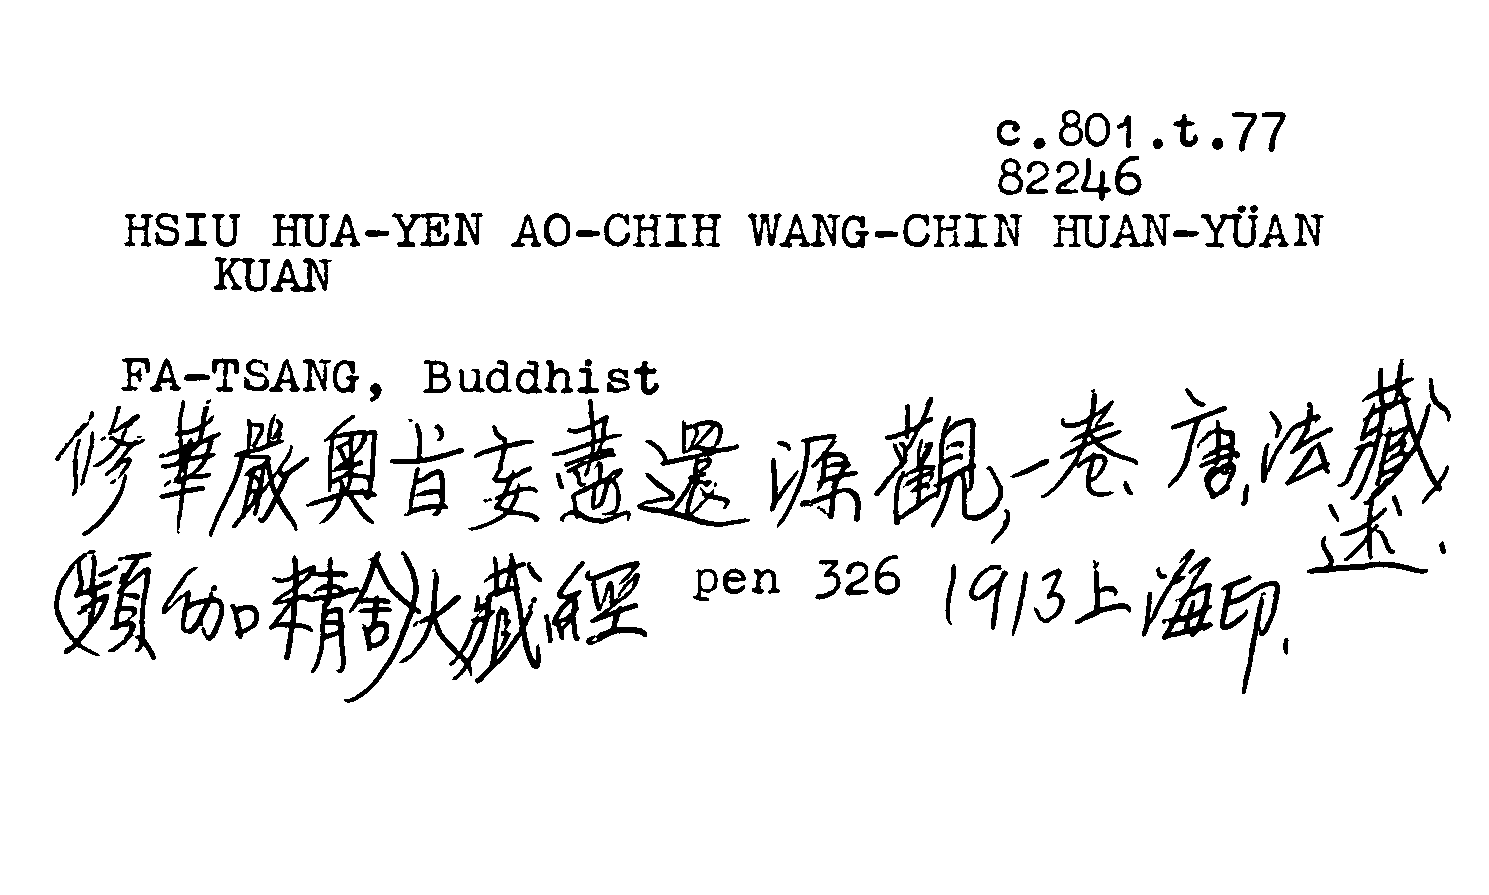 c.801.t.77
82246
HSIU HUA-YEN AO-CHIH WANG-CHIN HUAN-YÜAN
KUAN
FA-TSANG, Buddhist
修華嚴奧旨妄盡還源觀,一卷、唐,法藏述.
(頻伽精舍)大藏經 pen 326 1913上海印.